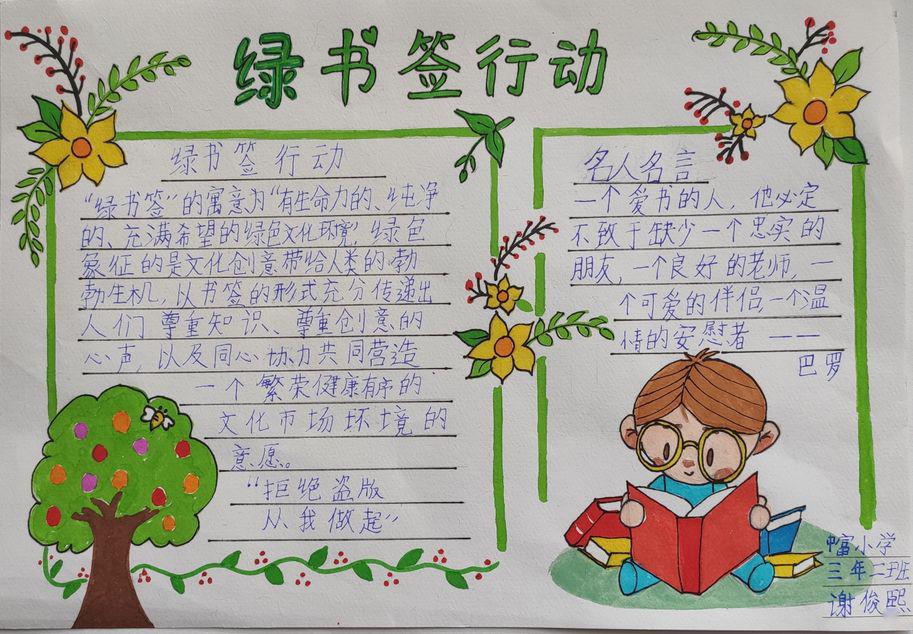 绿书签行动
绿书签行动
“绿书签”的寓意为“有生命力的、纯净
的、充满希望的绿色文化环境”,绿色
象征的是文化创意带给人类的勃
勃生机,以书签的形式充分传递出
人们尊重知识、尊重创意的
心声,以及同心协力共同营造
一个繁荣健康有序的
文化市场环境的
意愿。
“拒绝盗版
从我做起”
名人名言
一个爱书的人,他必定
不致于缺少一个忠实的
朋友,一个良好的老师,一
个可爱的伴侣,一个温
情的安慰者——
巴罗
中富小学
三年二班
谢俊熙